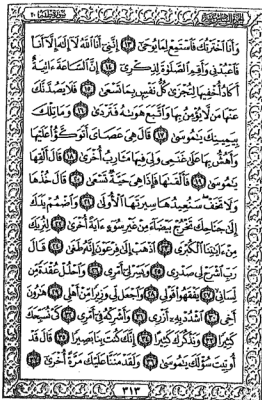 سورة طه ٢٠
وَأَنَا ٱخْتَرْتُكَ فَٱسْتَمِعْ لِمَا يُوحَىٰٓ ١٣ إِنَّنِىٓ أَنَا ٱللَّهُ لَآ إِلَٰهَ إِلَّآ أَنَا۠
فَٱعْبُدْنِى وَأَقِمِ ٱلصَّلَوٰةَ لِذِكْرِىٓ ١٤ إِنَّ ٱلسَّاعَةَ ءَاتِيَةٌ
أَكَادُ أُخْفِيهَا لِتُجْزَىٰ كُلُّ نَفْسٍۭ بِمَا تَسْعَىٰ ١٥ فَلَا يَصُدَّنَّكَ
عَنْهَا مَن لَّا يُؤْمِنُ بِهَا وَٱتَّبَعَ هَوَىٰهُ فَتَرْدَىٰ ١٦ وَمَا تِلْكَ
بِيَمِينِكَ يَٰمُوسَىٰ ١٧ قَالَ هِىَ عَصَاىَ أَتَوَكَّؤُا۟ عَلَيْهَا
وَأَهُشُّ بِهَا عَلَىٰ غَنَمِى وَلِىَ فِيهَا مَـَٔارِبُ أُخْرَىٰ ١٨ قَالَ أَلْقِهَا
يَٰمُوسَىٰ ١٩ فَأَلْقَىٰهَا فَإِذَا هِىَ حَيَّةٌ تَسْعَىٰ ٢٠ قَالَ خُذْهَا
وَلَا تَخَفْ سَنُعِيدُهَا سِيرَتَهَا ٱلْأُولَىٰ ٢١ وَٱضْمُمْ يَدَكَ
إِلَىٰ جَنَاحِكَ تَخْرُجْ بَيْضَآءَ مِنْ غَيْرِ سُوٓءٍ ءَايَةً أُخْرَىٰ ٢٢ لِنُرِيَكَ
مِنْ ءَايَٰتِنَا ٱلْكُبْرَى ٢٣ ٱذْهَبْ إِلَىٰ فِرْعَوْنَ إِنَّهُۥ طَغَىٰ ٢٤ قَالَ
رَبِّ ٱشْرَحْ لِى صَدْرِى ٢٥ وَيَسِّرْ لِىٓ أَمْرِى ٢٦ وَٱحْلُلْ عُقْدَةً مِّن
لِّسَانِى ٢٧ يَفْقَهُوا۟ قَوْلِى ٢٨ وَٱجْعَل لِّى وَزِيرًا مِّنْ أَهْلِى ٢٩ هَٰرُونَ
أَخِى ٣٠ ٱشْدُدْ بِهِۦٓ أَزْرِى ٣١ وَأَشْرِكْهُ فِىٓ أَمْرِى ٣٢ كَىْ نُسَبِّحَكَ
كَثِيرًا ٣٣ وَنَذْكُرَكَ كَثِيرًا ٣٤ إِنَّكَ كُنتَ بِنَا بَصِيرًا ٣٥ قَالَ قَدْ
أُوتِيتَ سُؤْلَكَ يَٰمُوسَىٰ ٣٦ وَلَقَدْ مَنَنَّا عَلَيْكَ مَرَّةً أُخْرَىٰٓ ٣٧
٣١٣